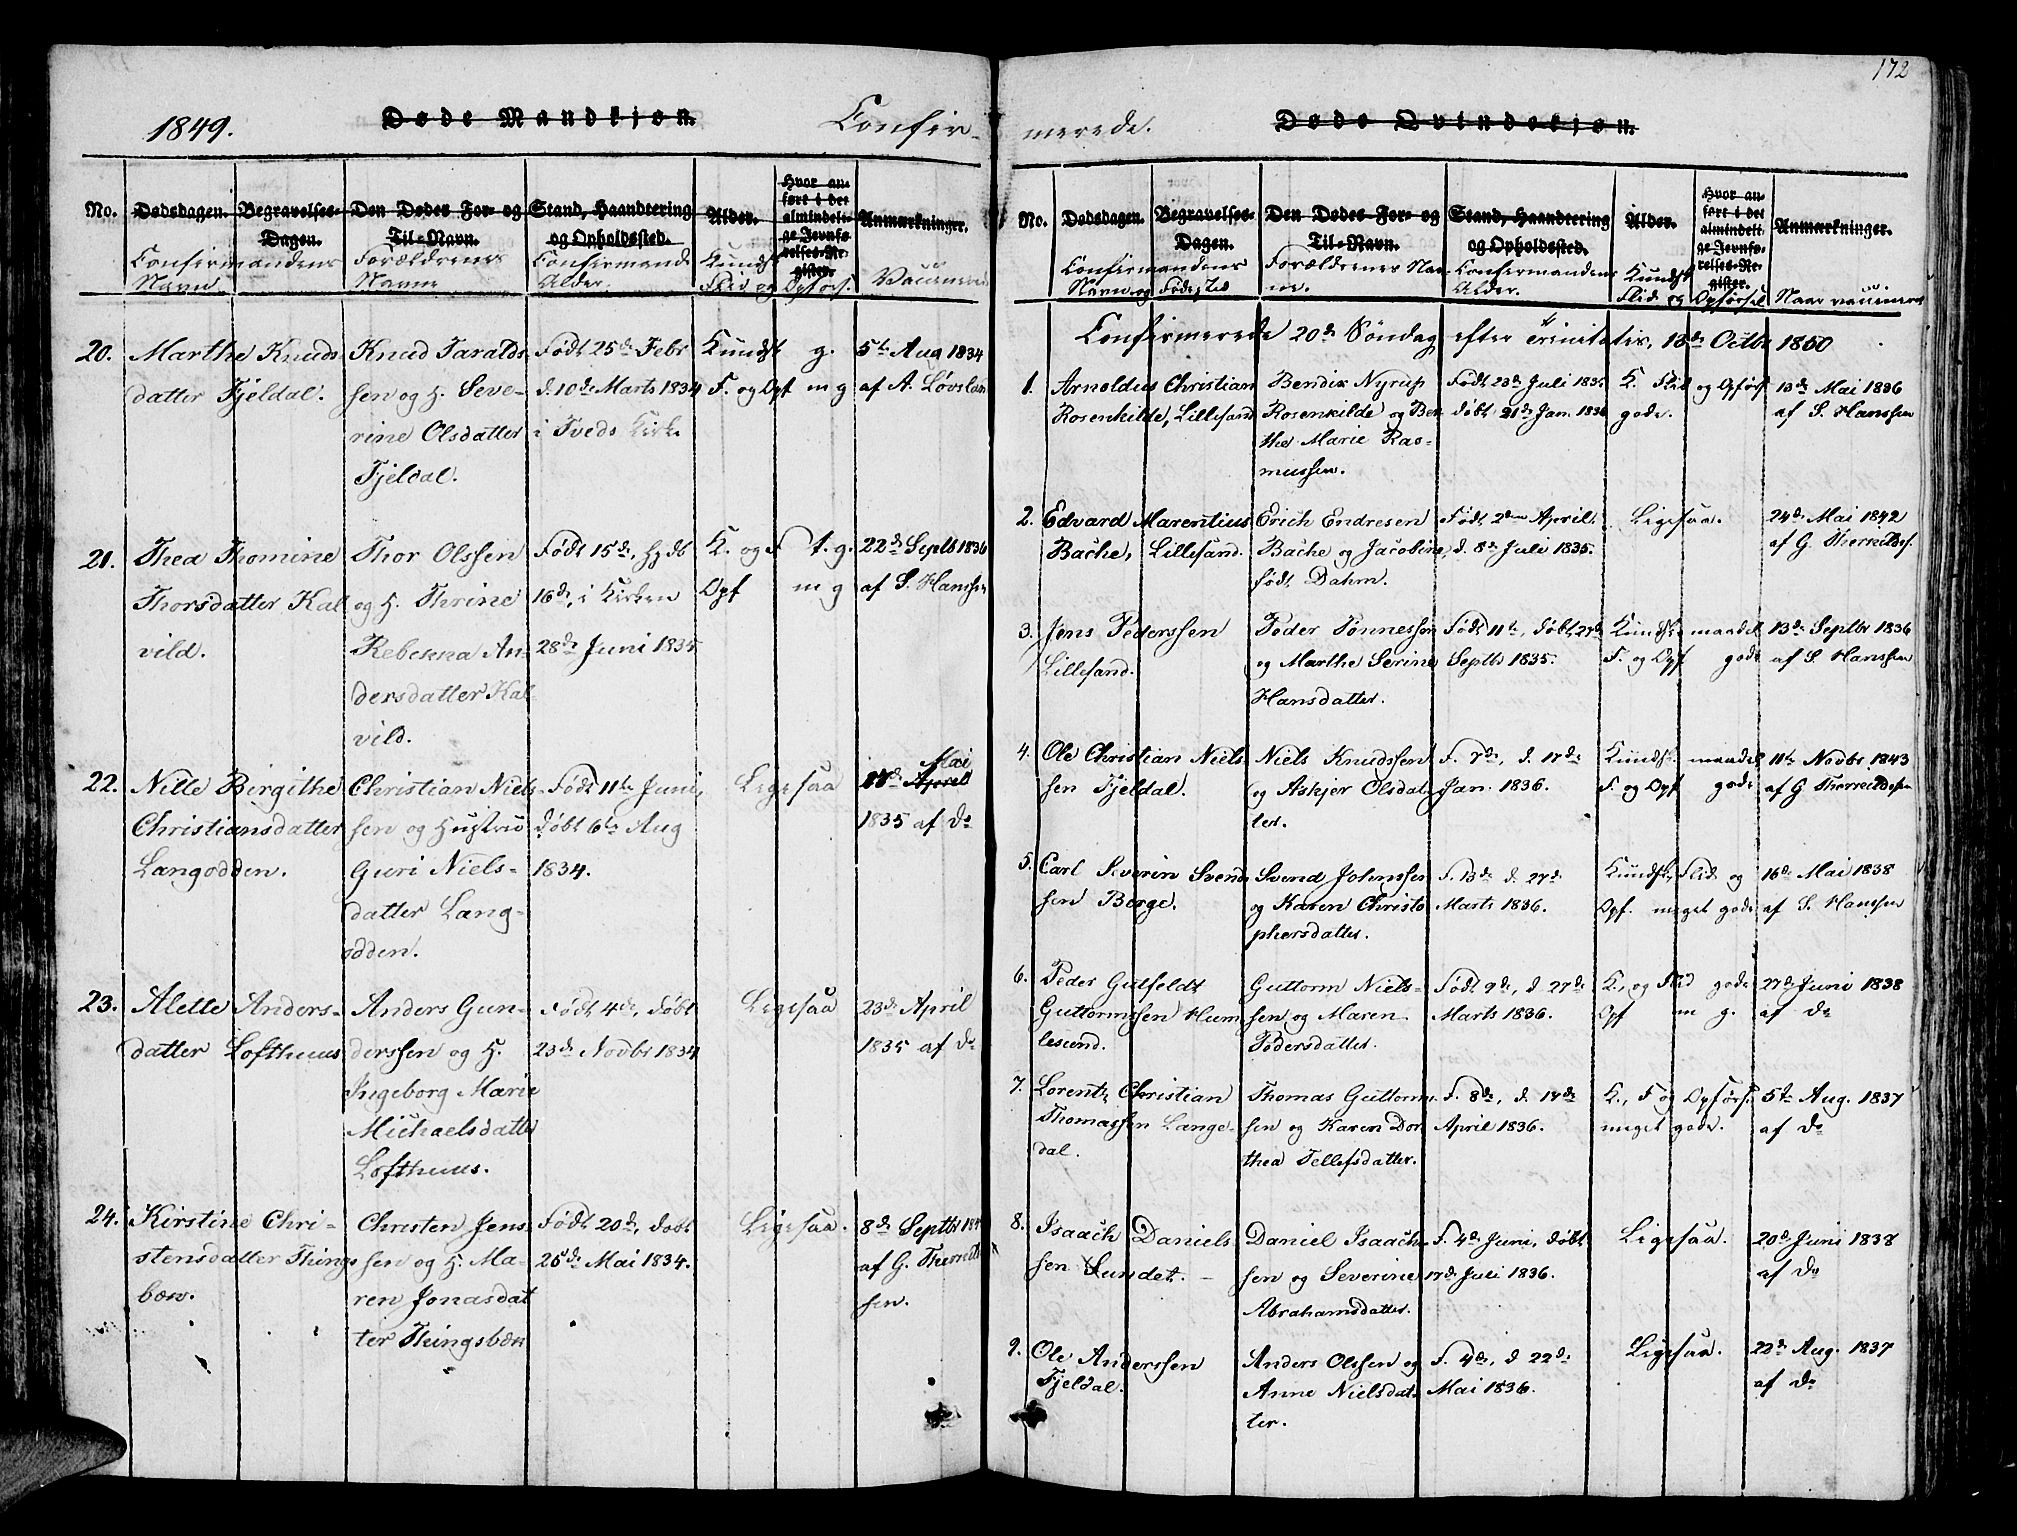 172
1849.
Døde Mandkjøn.
Confir-
No.
Dødsdagen.
Begravelses-Dagen.
Den Dødes For- og Til-Navn.
Stand, Haandtering og Opholdssted.
Alder.
Hvor anført i det almindelige Jevnførelses-Register.
Anmærkninger.
Confirmandens Navn.
Forældrenes Navne
Confirmand. Alder.
Kundsk Flid og Opførs.
Vaccinered
20.
Marthe Knuds
datter Fjeldal.
Knud Taralds
sen og H. Seve-
rine Olsdatter
Fjeldal.
Født 25de Febr
d. 10de Marts 1834
i Tveds Kirke
Kundsk g.
F. og Opf m g
5te Aug 1834
af A. Løvsland
21.
Thea Thomine
Thorsdatter Kal
vild.
Thor Olssen
og H. Thrine
Rebekka An-
dersdatter Kal-
vild.
Født 15de, Hjdbt
16de, i Kirken
28de Juni 1835
K. og F t. g.
Opf m g
22de Septb 1836
af S. Hanssen
22.
Nille Birgithe
Christiansdatter
Langodden.
Christian Niels-
sen og Hustru
Guri Niels-
datter Lang-
odden.
Født 11te Juni,
døbt 6te Aug
1834.
Ligesaa
Mai
April
1835 af do
23.
Alette Anders-
datter Lofthuus
Anders Gun-
derssen og H.
Ingeborg Marie
Michaelsdatter
Lofthuus.
Født 4de, døbt
23de Novbr 1834
Ligesaa
23de April
1835 af do
24.
Kirstine Chri-
stensdatter Things
bæk.
Christen Jens
sen og H. Ma-
ren Jonasdat
ter Thingsbæk
Født 20de, døbt
25de Mai 1834.
Ligesaa.
8de Septbr
af G. Therkild
sen.
merede.
Døde Qvindekjøn.
No.
Dødsdagen.
Begravelses-Dagen.
Den Dødes For- og Til-Navn.
Stand, Haandtering og Opholdssted.
Alder.
Hvor anført i det almindelige Jevnførelses-Register.
Anmærkninger.
Confirmandens Navn og Fødested
Forældrenes Navne.
Confirmandens Alder.
Kundsk Flid og Opførsel
Naar vaccineret
Confirmerede 20de Søndag efter Trinitatis, 13de Octbr 1850
1.
Arnoldus Christian
Rosenkilde, Lillesand
Bendix Nyrup
Rosenkilde og Ber
the Marie Ras-
mussen.
Født 23de Juli 1835
døbt 21de Jan. 1836
K. Flid og Opførs
gode.
13de Mai 1836
af S. Hanssen
2.
Edvard Marentius
Bache, Lillesand.
Erich Endresen
Bache og Jacobine,
født Dahm.
Født 2den April,
d. 8de Juli 1835.
Ligesaa.
24de Mai 1842
af G. Therkildsf.
3.
Jens Pederssen
Lillesand.
Peder Tønnessen
og Marthe Serine
Hansdatter.
Født 11te, døbt 27de
Septbr 1835.
Kundsk. maadel
F. og Opf gode
13de Septbr 1836
af S. Hanssen
4.
Ole Christian Niels
sen Fjeldal.
Niels Knudssen
og Askjer Olsdat-
ter.
F. 7de, d. 17de
Jan. 1836.
Kundsk. maadel
F. og Opf gode
11te Novbr 1843
af G Therkildsen
5.
Carl Severin Svend
sen Berge.
Svend Johnssen
og Karen Christo
phersdatter.
F. 13de d. 27de
Marts 1836.
Kundsk, Flid og
Opf. meget gode
16de Mai 1838
af S. Hanssen
6.
Peder Gulfeldt
Guttormssen Hum
lesund.
Guttorm Niels-
sen og Maren
Pedersdatter.
Født 9de, d. 27de
Marts 1836.
K., og Flid gode
Opf m g.
27de Juni 1838
af do
7.
Lorentz Christian
Thomassen Lange-
dal.
Thomas Guttorm-
sen og Karen Dor
thea Tellefsdatter.
F. 8de, d. 17de
April 1836.
K., F og Opførs.
meget gode.
5te Aug. 1837
af do
8.
Isaach Daniels
sen Sundet.
Daniel Isaach-
sen og Severine
Abrahamsdatter.
F. 4de Juni, døbt
17de Juli 1836.
Ligesaa.
20de Juni 1838
af do
9.
Ole Anderssen
Fjeldal.
Anders Olssen og
Anne Nielsdat-
ter.
F. 4de, d 22de
Mai 1836.
Ligesaa.
22de Aug. 1837
af do